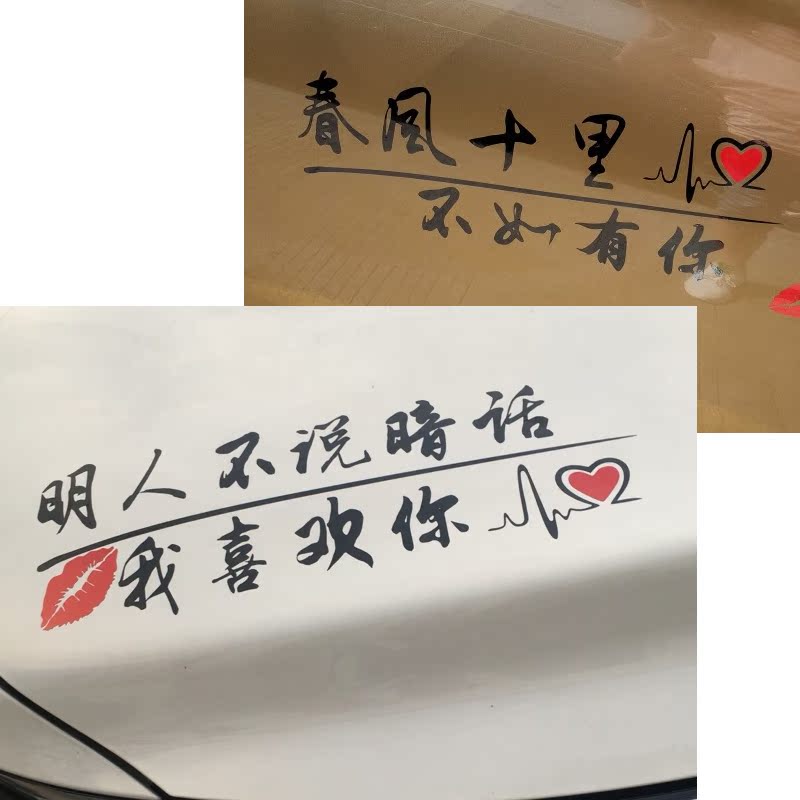 春风十里
不如有你
明人不说暗话
我喜欢你